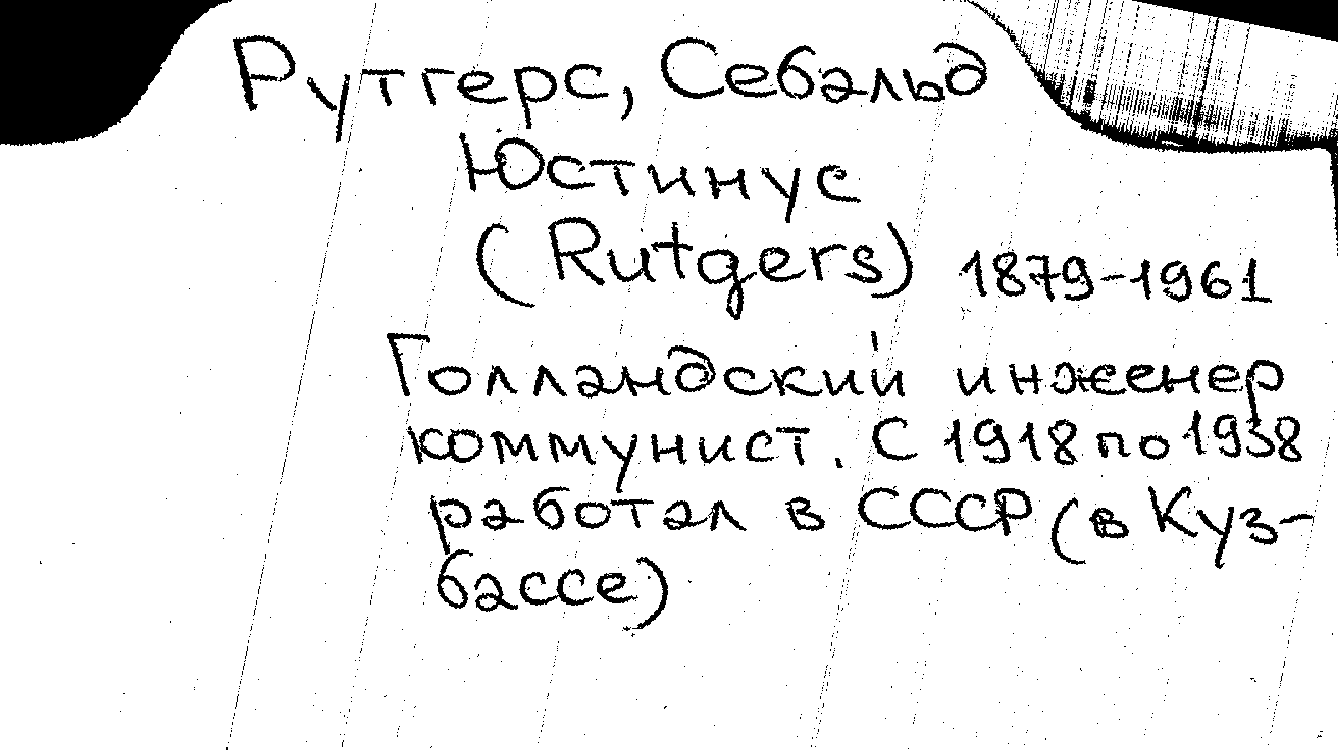 Рутгерс, Себальд
Юстинус
(Rutgers) 1879-1961
Голландский инженер
коммунист. С 1918 по 1938
работал в СССР (в Куз-
бассе)